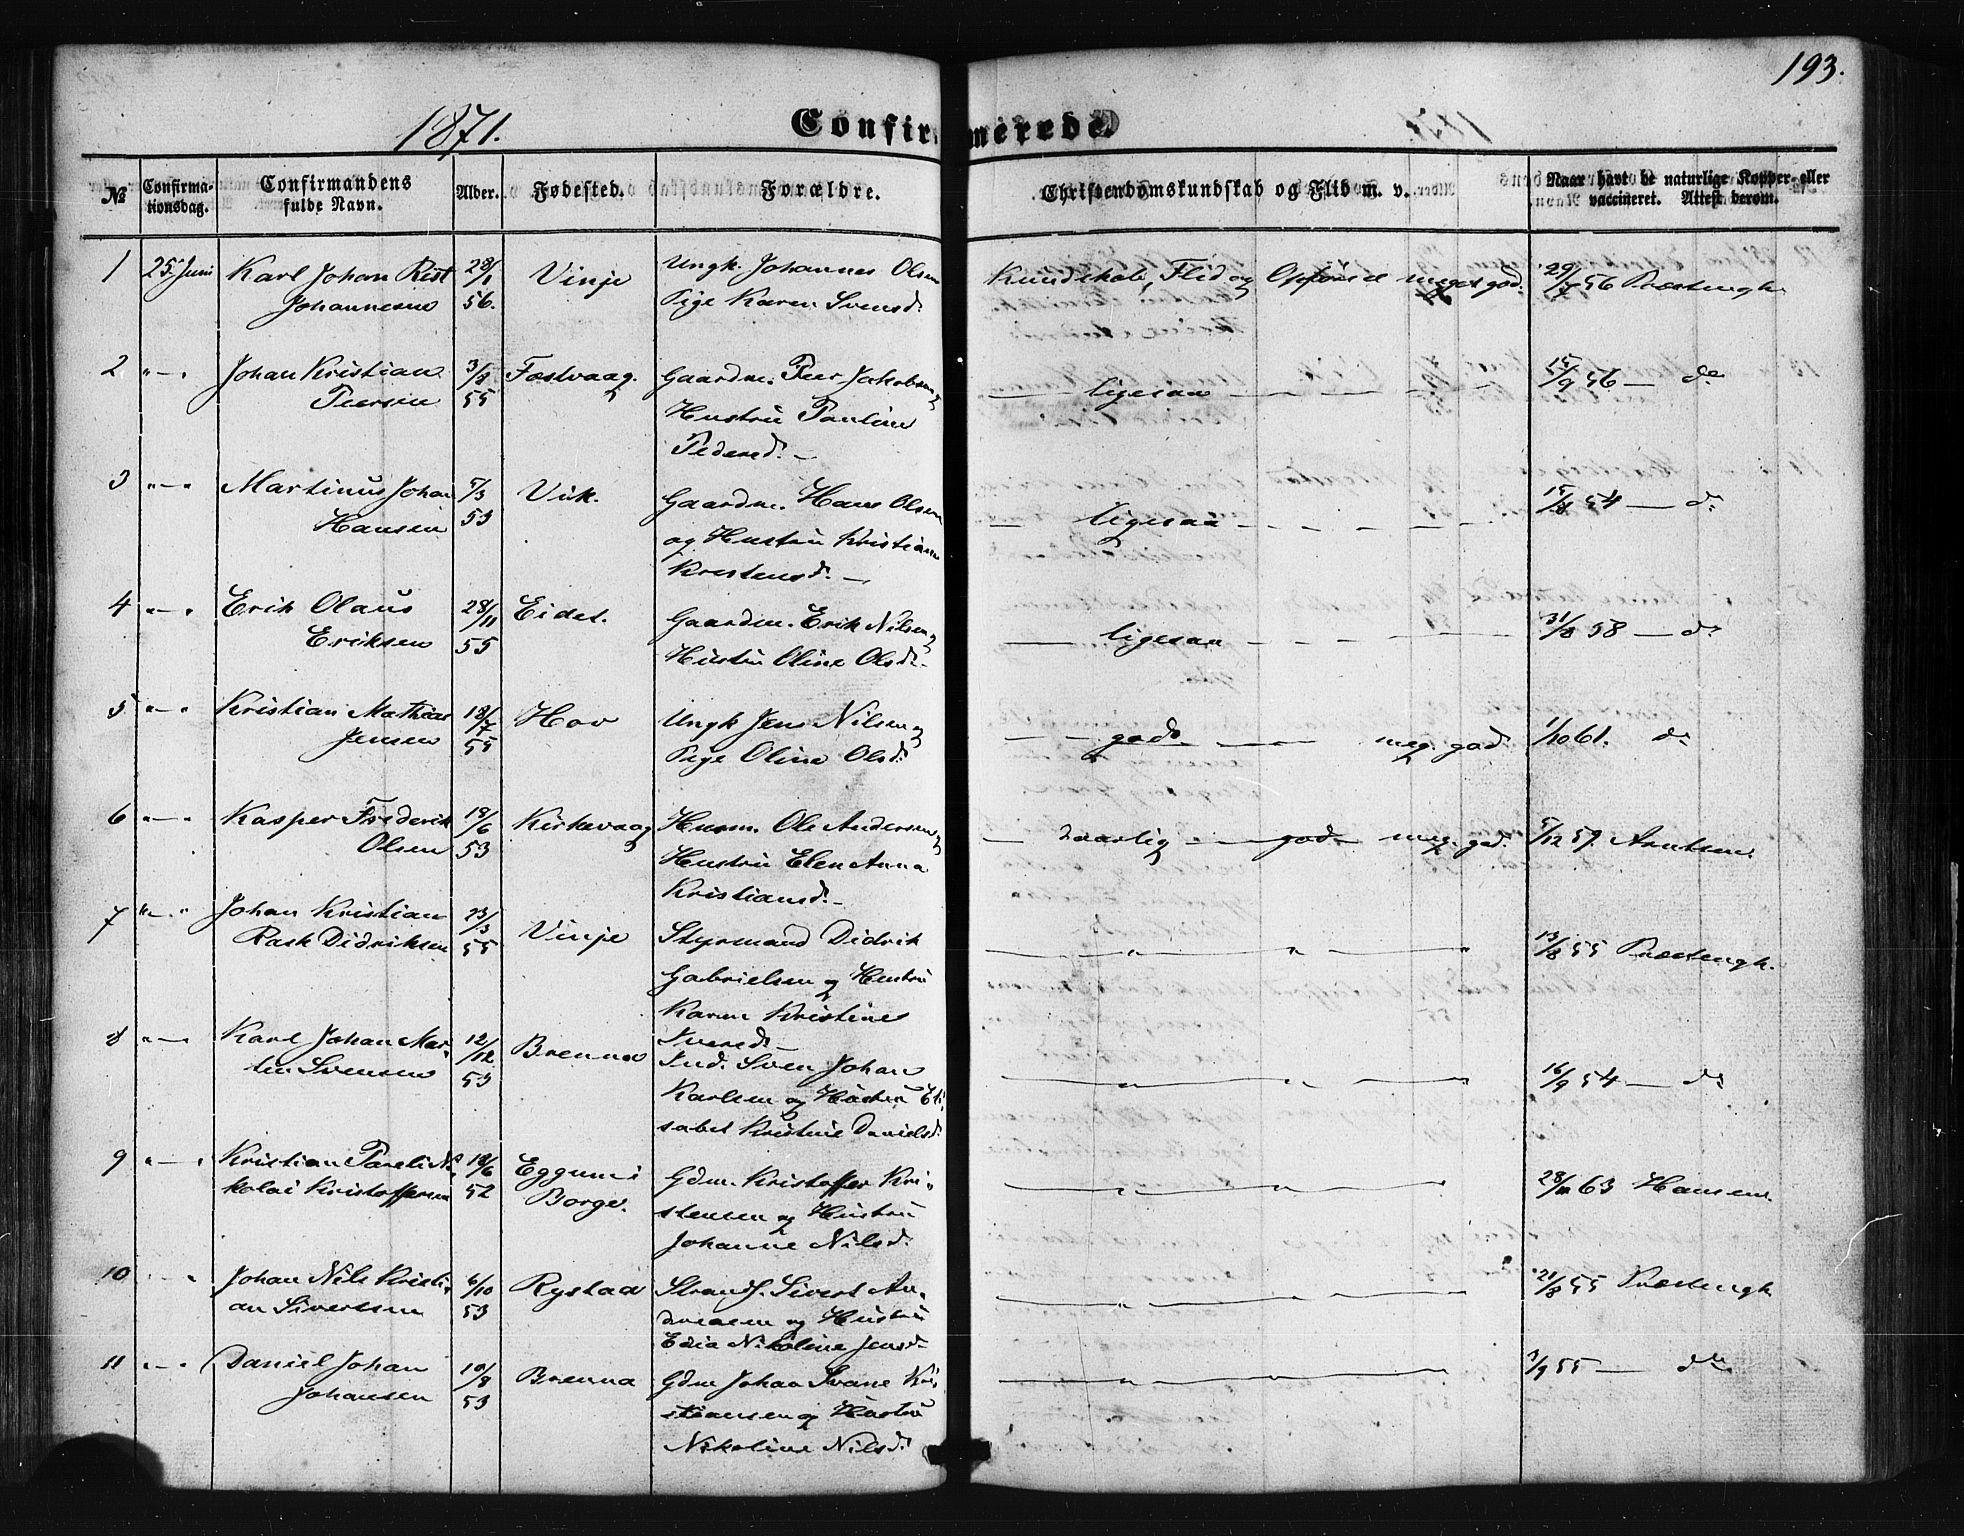 193.
1871.
Confirmerede.
№
Confirmationsdag.
Confirmandens fulde Navn.
Alder.
Fødested.
Forældre.
Christendomskundskab og Flid m. v.
Naar havt de naturlige Kopper eller vaccineret. Attest derom.
1 25 Juni Karl Johan Rist 28/1 Vinje Ungk. Johannes Olsen Kundskab, Flid og Opførsel meget god. 29/7 56 Præstengh.
Johannesen 56. Pige Karen Svensd.
2 " — " Johan Kristian 3/8 Fostvaag. Gaardm. Peer Jakobsen og — ligesaa — — — 15/9 56 — do
Peersen 55 Hustru Pauline
Pedersd. —
3 " — " Martinus Johan 5/3 Vik. Gaardm. Hans Olsen — ligesaa — — — 15/8 54 — do
Hansen 53 og Hustru Kristiane
Krestensd. —
4 " — " Erik Olaus 28/11 Eidet. Gaardm. Erik Nilsen og — ligesaa — — — 31/8 58 — do
Eriksen 55 Hustru Oline Olsd. —
5 " — " Kristian Mathias 18/7 Hov Ungk Jens Nilsen og — — god — — meg. god 1/10 61. do
Jensen 55 Pige Oline Olsd.
6 " — " Kasper Frederik 18/6 Kirkevaag Husm. Ole Andersen og — daarlig — — god — meg. god. 5/12 59. Arntsen.
Olsen 53 Hustru Elen Anna
Kristiansd. —
7 " — " Johan Kristian 23/3 Vinje Styrmand Didrik — " — " — " 13/8 55 Præstengh.
Rask Didriksen 55 Gabrielsen og Hustru
Karen Kristine
Iversd. —
8 " — " Karl Johan Mar- 12/12 Brenna Ind. Sven Johan — " — " — " 16/9 54 — do
tin Svensen 53 Karlsen og Hustru Eli-
sabet Kristine Danielsd.
9 " — " Kristian Pareli Ni- 18/6 Eggum i Gdm. Kristoffer Kri- — " — " — " 28/11 63 Hansen.
kolai Kristoffersen 52 Borge. stensen og Hustru
Johanne Nilsd.
10 " — " Johan Nils Kristi- 6/10 Rystad Strands. Sivert An- — " — " — " 21/8 55 Præstengh
an Sivertsen 53 dreasen og Hustru
Edia Nikoline Jensd.
11 " — " Daniel Johan 10/8 Brenna Gdm Johan Svane Kri- — " — " — " 3/9 55 — do
Johansen 53 stiansen og Hustru
Nikoline Nilsd.